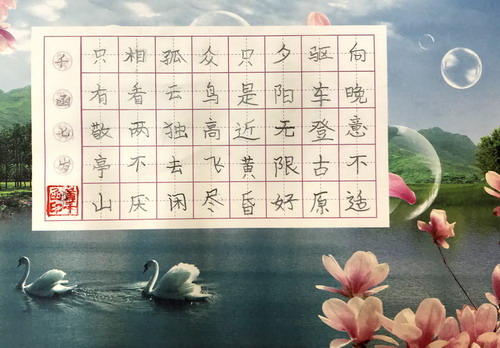 向晚意不适
驱车登古原
夕阳无限好
只是近黄昏
众鸟高飞尽
孤云独去闲
相看两不厌
只有敬亭山
函七岁